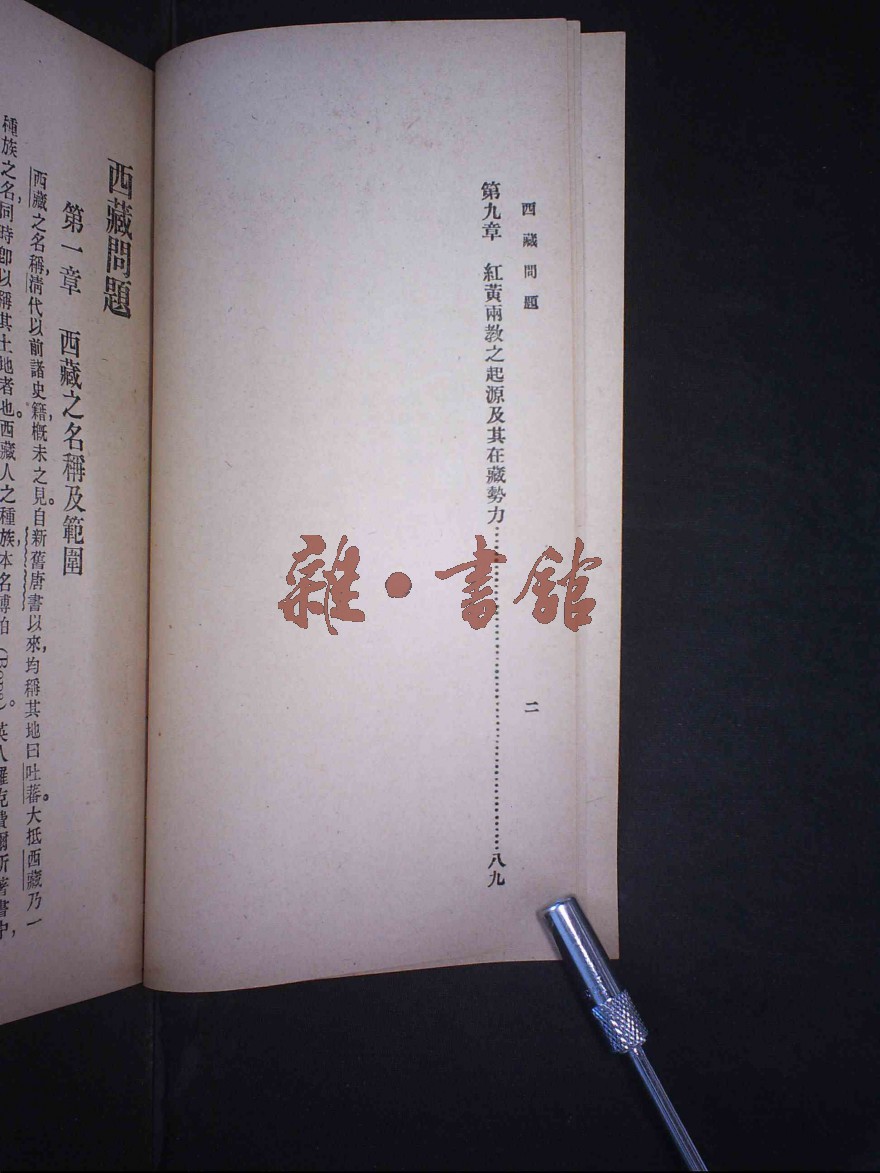 西藏問題
第九章　紅黃兩教之起源及其在藏勢力……八九
二
雜•書館
西藏問題
第一章　西藏之名稱及範圍
西藏之名稱，清代以前諸史籍，概未之見。自新舊唐書以來，均稱其地曰吐蕃。大抵西藏乃一
種族之名，同時卽以稱其土地者也。西藏人之種族，本名博怕（Bopa）。英人羅克費爾所著書中，